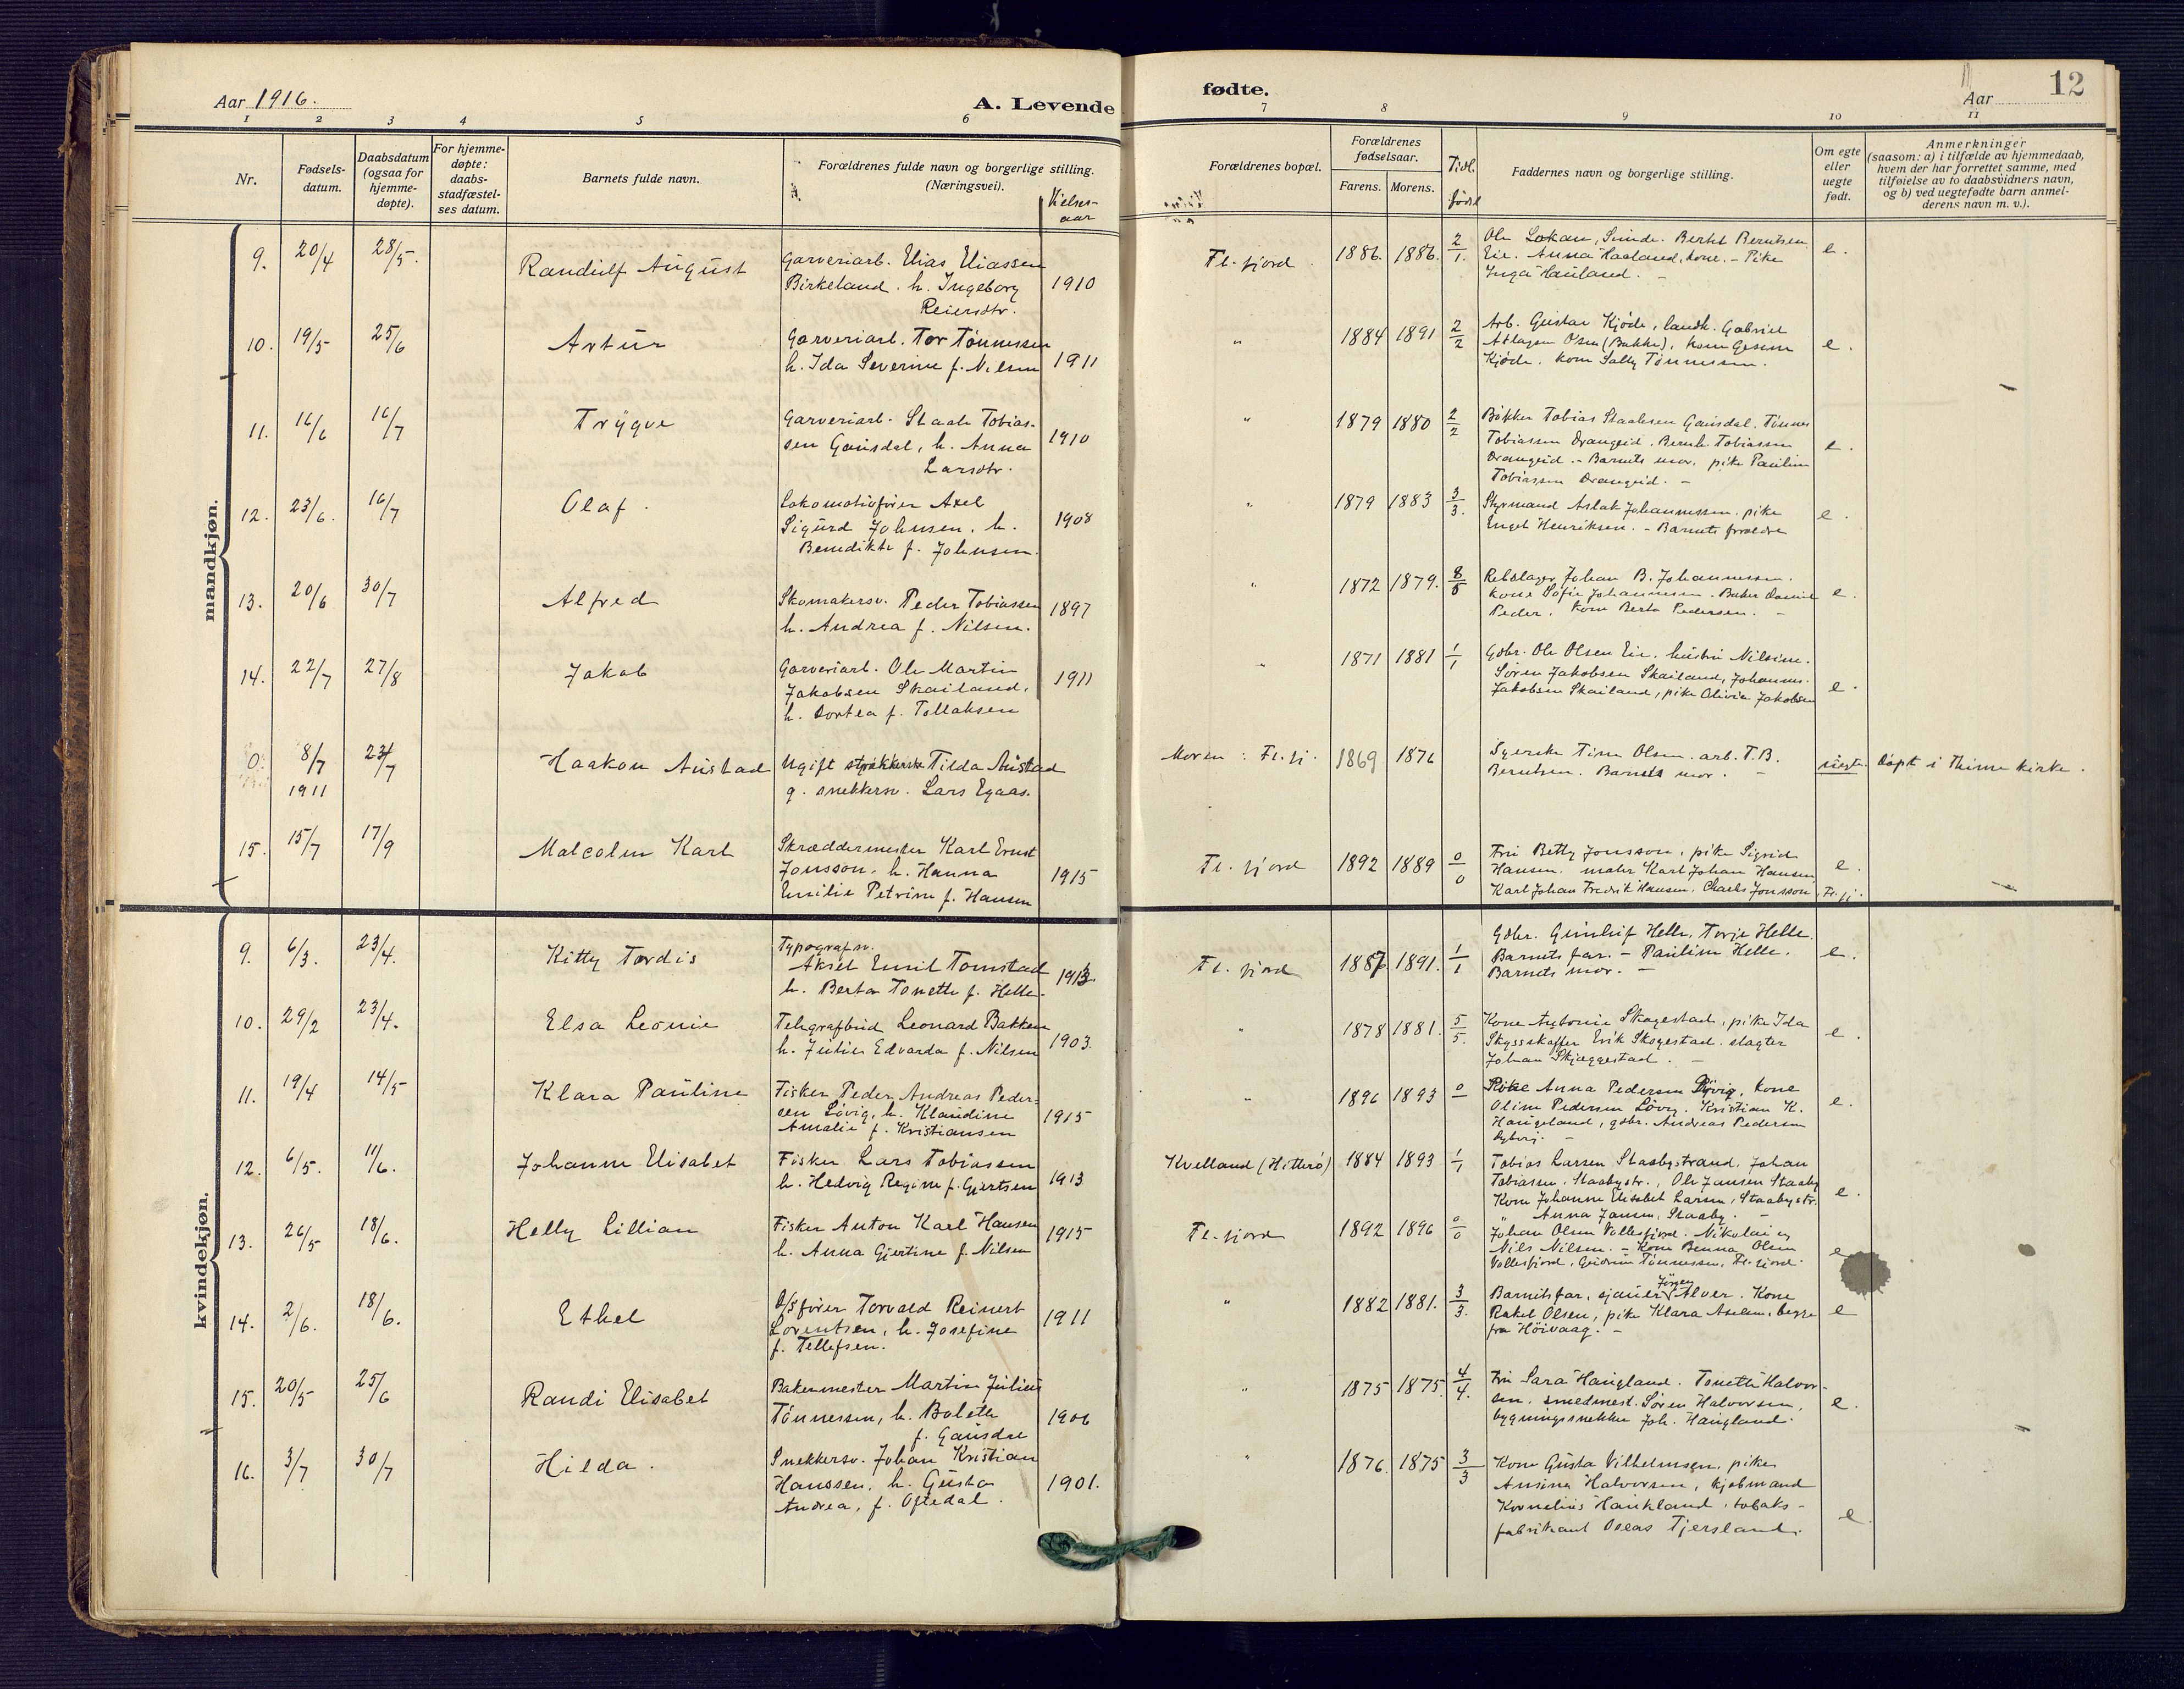 Aar 1916.
A. Levende
fødte.
12
Aar
1 2 3 4 5 6 7 8 9 10 11
Nr.
Fødsels-
datum.
Daabsdatum
(ogsaa for
hjemme-
døpte).
For hjemme-
døpte:
daabs-
stadfæstel-
ses datum.
Barnets fulde navn.
Forældrenes fulde navn og borgerlige stilling.
(Næringsvei).
Vielses-
aar
Forældrenes bopæl.
Forældrenes
fødselsaar.
Farens. Morens.
Tidl.
født
Faddernes navn og borgerlige stilling.
Om egte
eller
uegte
født.
Anmerkninger
(saasom: a) i tilfælde av hjemmedaab,
hvem der har forrettet samme, med
tilføielse av to daabsvidners navn,
og b) ved uegtefødte barn anmel-
derens navn m. v.).
mandkjøn.
9. 20/4 28/5. Randulf August
Garveriarb. Elias Eliassen
Birkeland. h. Ingeborg
Reiersdtr.
1910
Fl. fjord. 1886. 1886. 2/1.
Ole Lokan, Sunde. Bertel Berntsen
Eie. Anna Haaland, kone. - Pike
Inga Hauland. -
e.
10. 19/5 25/6 Artur
Garveriarb. Tor Tønnessen
h. Ida Severine f. Nilsen
1911
" 1884 1891 2/2
Arb. Gustav Kjøde, landh. Gabriel
Atlagsen Osen (Bakke), kone Gesine
Kjøde. kone Sally Tønnessen.
e.
11. 16/6 16/7 Trygve
Garveriarb. Staale Tobias-
sen Gausdal, h. Anna
Larsdtr.
1910
" 1879 1880 2/2
Bøkker Tobias Staalesen Gausdal. Tønnes
Tobiassen Drangeid. Bernh. Tobiassen
Drangeid. - Barnets mor, pike Pauline
Tobiassen Drangeid. -
e.
12. 23/6. 16/7 Olaf.
Lokomotivfører Axel
Sigurd Johnsen. h.
Benedikte f. Johnsen.
1908
" 1879 1883 3/3.
Styrmand Aslak Johannessen. pike
Engel Henriksen. - Barnets forældre
e.
13. 20/6 30/7 Alfred
Skomakersv. Peder Tobiassen
h. Andrea f. Nilsen.
1897
" 1872 1879. 8/8
Rebslager Johan B. Johannessen.
kone Sofie Johannessen. Baker Daniel
Peder. kone Berta Pedersen. -
e.
14. 22/7 27/8 Jakob
Garveriarb. Ole Martin
Jakobsen Skailand.
h. Dortea f. Tollaksen
1911
" 1871 1881 1/1
Gdbr. Ole Olsen Eie. hustru Nilsine.
Søren Jakobsen Skailand, Johannes
Jakobsen Skailand, pike Olivia Jakobsen
e.
0. 8/7 1911 23/7 Haakon Austad
Ugift Tilda Austad
g. snekkersv. Lars Egaas.
Moren: Fl. fj. 1869 1876
Syerske Tine Olsen. arb. T. B.
Berntsen. Barnets mor. -
uegte. Døpt i Thime kirke.
15. 15/7 17/9 Malcolm Karl
Skræddermester Karl Ernst
Jonsson. h. Hanna
Emilie Petrine f. Hansen
1915
Fl. fjord 1892 1889 0/0
Fru Betty Jonsson, pike Sigrid
Hansen. Karl Johan Hansen
Karl Johan Fredrik Hansen. Charls Jonsson, Fl. fj.
e.
kvindekjøn.
9. 6/3. 23/4. Kitty Tordis
Typografsv.
Aksel Emil Tomstad
h. Berta Tonette f. Helle.
1913
Fl. fjord 1887. 1891. 1/1
Gdbr. Gunluf Helle, Torje Helle.
Barnets far. - Pauline Helle.
Barnets mor. -
e.
10. 29/2 23/4. Elsa Leonie
Telegrafbud Leonard Bakken
h. Julie Edvarda f. Nilsen
1903.
" 1878 1881. 5/5.
Kone Antonie Skogestad, pike Ida
Skyssskaffer Erik Skogestad. slagter
Johan Skjæggestad. -
e.
11. 19/4 14/5 Klara Pauline
Fisker Peder Andreas Peder-
sen Løvig, h. Klaudine
Amalie f. Kristiansen
1915
" 1896 1893 0
Pike Anna Pedersen Løvig, kone
Oline Pedersen Løvig. Kristian K.
Haugeland, gdbr. Andreas Pedersen
e.
12. 6/5. 11/6. Johanne Elisabet
Fisker Lars Tobiassen
h. Hedvig Regine f. Gjertsen
1913
Kvelland (Hitterø) 1884 1893 1/1
Tobias Larsen Staabystrand. Johan
Tobiassen. Staabystr., Ole Jansen Staaby
Kone Johanne Elisabet Larsen, Staabystr.
" Anna Jansen, Staaby. -
e.
13. 26/5 18/6. Helly Lillian
Fisker Anton Karl Hansen
h. Anna Gjertine f. Nilsen
1915
Fl. fjord 1892 1896 0/0
Johan Olsen Vollesfjord. Nikolai og
Nils Nilsen. - Kone Benna Olsen
Vollesfjord, Gudrun Tønnessen, Fl. fjord.
e
14. 2/6. 18/6. Ethel
D/Sfører Torvald Reinert
Lorentsen, h. Josefine
f. Tellefsen.
1911
" 1882 1881. 3/3.
Barnets far, sjauer Jørgen Alver. Kone
Rakel Olsen, pike Klara Aselm. begge
fra Høivaag. -
e
15. 20/5 25/6 Randi Elisabet
Bakermester Martin Julius
Tønnessen, h. Bolette
f. Gausdal
1906
" 1875 1875. 4/4.
Fru Sara Haugland. Tonette Halvor-
sen. smedmest. Søren Halvorsen,
bygningssnekker Joh. Haugland.
e.
16. 3/7 30/7 Hilda.
Snekkersv. Johan Kristian
Hanssen, h. Gusta
Andrea, f. Oftedal.
1901.
" 1876. 1875 3/3
Kone Gusta Vilhelmsen, pike
Ansine Halvorsen, kjøbmand
Kornelius Haukland, tobaks-
fabrikant Oseas Tjersland.
e.